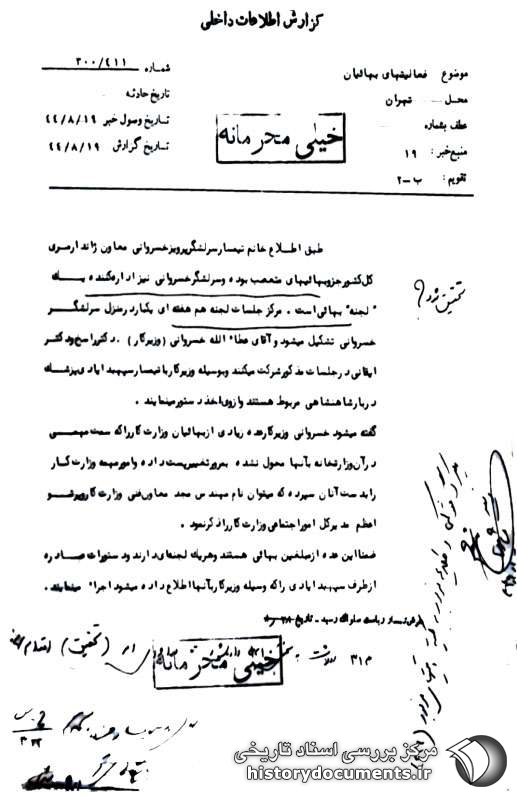 گزارش اطلاعات داخلی
موضوع فعالیتهای بهائیان
محل تهران
عطف بشماره
منبع خبر : ۱۹
تقویم : ب-۲
شماره ۳۰۰/۴۱۱
تاریخ حادثه
تاریخ وصول خبر ۴۴/۸/۱۹
تاریخ گزارش ۴۴/۸/۱۹
خیلی محرمانه
طبق اطلاع خانم تیمسار سرلشگر پرویز خسروانی معاون ژاندارمری
کل کشور جزو بهائیهای متعصب بوده و سرلشگر خسروانی نیز اداره کننده یک
"لجنه" بهائی است . مرکز جلسات لجنه هم هفته ای یکبار در منزل سرلشگر
خسروانی تشکیل میشود و آقای عطاء الله خسروانی (وزیر کار) . دکتر راسخ و دکتر
ایقانی در جلسات مذکور شرکت میکنند و بوسیله وزیر کار با تیمسار سپهبد ایادی پزشک
دربار شاهنشاهی مربوط هستند و از وی اخذ دستور مینمایند .
گفته میشود خسروانی وزیر کار عده زیادی از بهائیان وزارت کار را که سمت مهمی
در آن وزارتخانه بآنها محول نشده بمرور تغییر پست داده و امور مهمه وزارت کار
را بدست آنان سپرده که میتوان نام مهندس مجد معاون فنی وزارت کار و پرتو
اعظم مدیر کل امور اجتماعی وزارت کار را ذکر نمود .
ضمنا این عده از مبلغین بهائی هستند و هریک لجنه ای دارند و دستورات صادره
از طرف سپهبد ایادی را که وسیله وزیر کار بآنها اطلاع داده میشود اجرا مینمایند .
ریاست ساواک رسید - تاریخ
خیلی محرمانه
۳۱۲
(تحقیق) اقدام
تحقیق شود ؟
مرکز بررسی اسناد تاریخی
historydocuments.ir